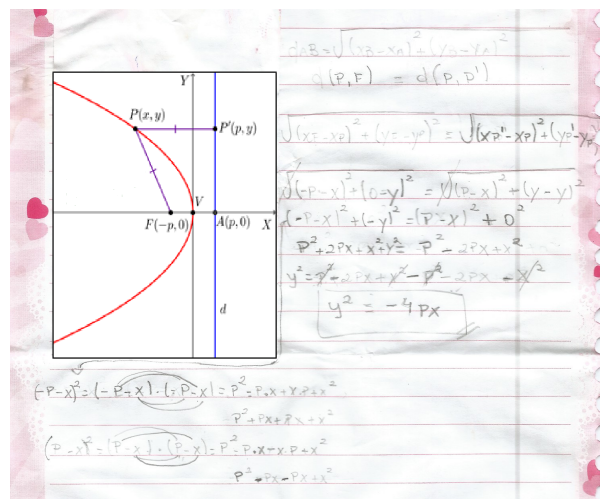 dAB=√(xB-xA)²+(yB-yA)²
d(P,F) = d(P,P')
√(xF-xP)²+(yF-yP)² = √(xP'-xP)²+(yP'-yP)²
√(-P-x)²+(0-y)² = √(P-x)²+(y-y)²
(-P-x)²+(-y)²=(P-x)²+0²
P²+2Px+x²+y²= P²-2Px+x²
y²=P²-2Px+x²-P²-2Px-x²
y² = -4Px
Y
P(x,y)
P'(p,y)
V
F(-p,0)
A(p,0)
X
d
(-P-x)²=(-P-x)·(-P-x)=P²+P·x+x·P+x²
P²+Px+Px+x²
(P-x)²=(P-x)·(P-x)=P²-P·x-x·P+x²
P²-Px-Px+x²